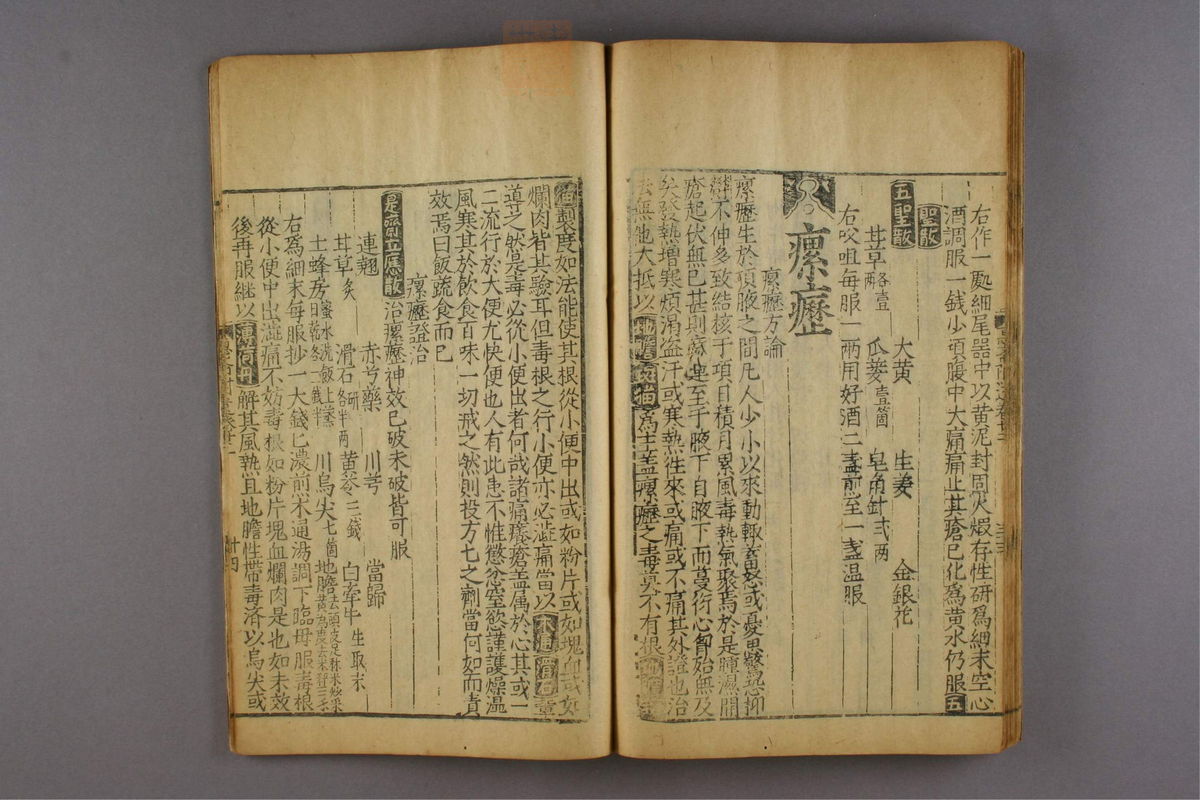 右作一處細尾器中以黃泥封固火煆存性研爲細末空心
酒調服一錢少頃腹中大痛痛止其瘡已化爲黃水仍服五
聖散
五聖散
大黃 生薑 金銀花
甘草各壹兩 瓜蔞壹箇 皂角針弍兩
右㕮咀每服一兩用好酒二盞煎至一盞温服
瘰癧
瘰癧方論
瘰癧生於項腋之間凡人少小以來動輒蓄怒或憂思驚恐抑
不伸多致結核于項日積月累風毒熱氣聚焉於是腫濕開
瘡起伏無已甚則連至于腋下自腋下而蔓衍心胷始無及
矣發熱增寒煩滿盗汗或寒熱徃來或痛或不痛其外證也治
法無他大抵以地膽班猫爲主盖瘰癧之毒莫不有根
猫製度如法能使其根從小便中出或如粉片或如塊血或如
爛肉皆其驗耳但毒根之行小便亦必澁痛當以木通滑石
導之然是毒必從小便出者何哉諸痛癢瘡盖属於心其或一
二流行於大便尤快便也人有此患不惟懲忿窒慾謹護燥濕
風寒其於飲食百味一切戒之然則投方匕之劑當何如而責
效焉曰飯蔬食而已
瘰癧證治
是齋立應散 治瘰癧神效已破未破皆可服
連翹 赤芍藥 川芎 當歸
甘草炙 滑石研各半兩 黃芩三錢 白牽牛生取末
土蜂房蜜水洗飯上蒸日乾各二錢半 川烏尖七箇 地膽去頭
右爲細末每服抄一大錢匕濃煎木通湯調下臨卧服毒根
從小便中出澁痛不妨毒根如粉片塊血爛肉是也如未效
後再服繼以 解其風熱且地膽性帶毒済以烏尖或